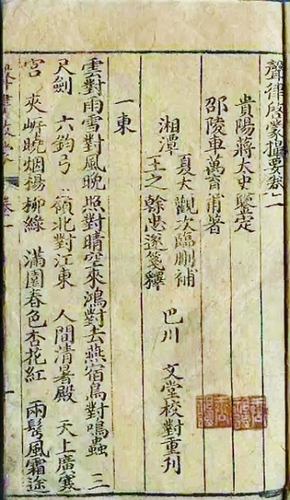 聲律啓蒙撮要卷一
貴陽蔣太史鑒定
邵陵車萬育甫著
湘潭 夏大觀次臨刪補
王之榦忠遂箋釋
巴川 文堂校對重刊
一東
雲對雨雪對風晚照對晴空來鴻對去燕宿鳥對鳴蟲三
尺劍 六鈞弓 嶺北對江東 人間清暑殿 天上廣寒
宮 夾岸曉烟楊柳綠 滿園春色杏花紅 兩鬢風霜途